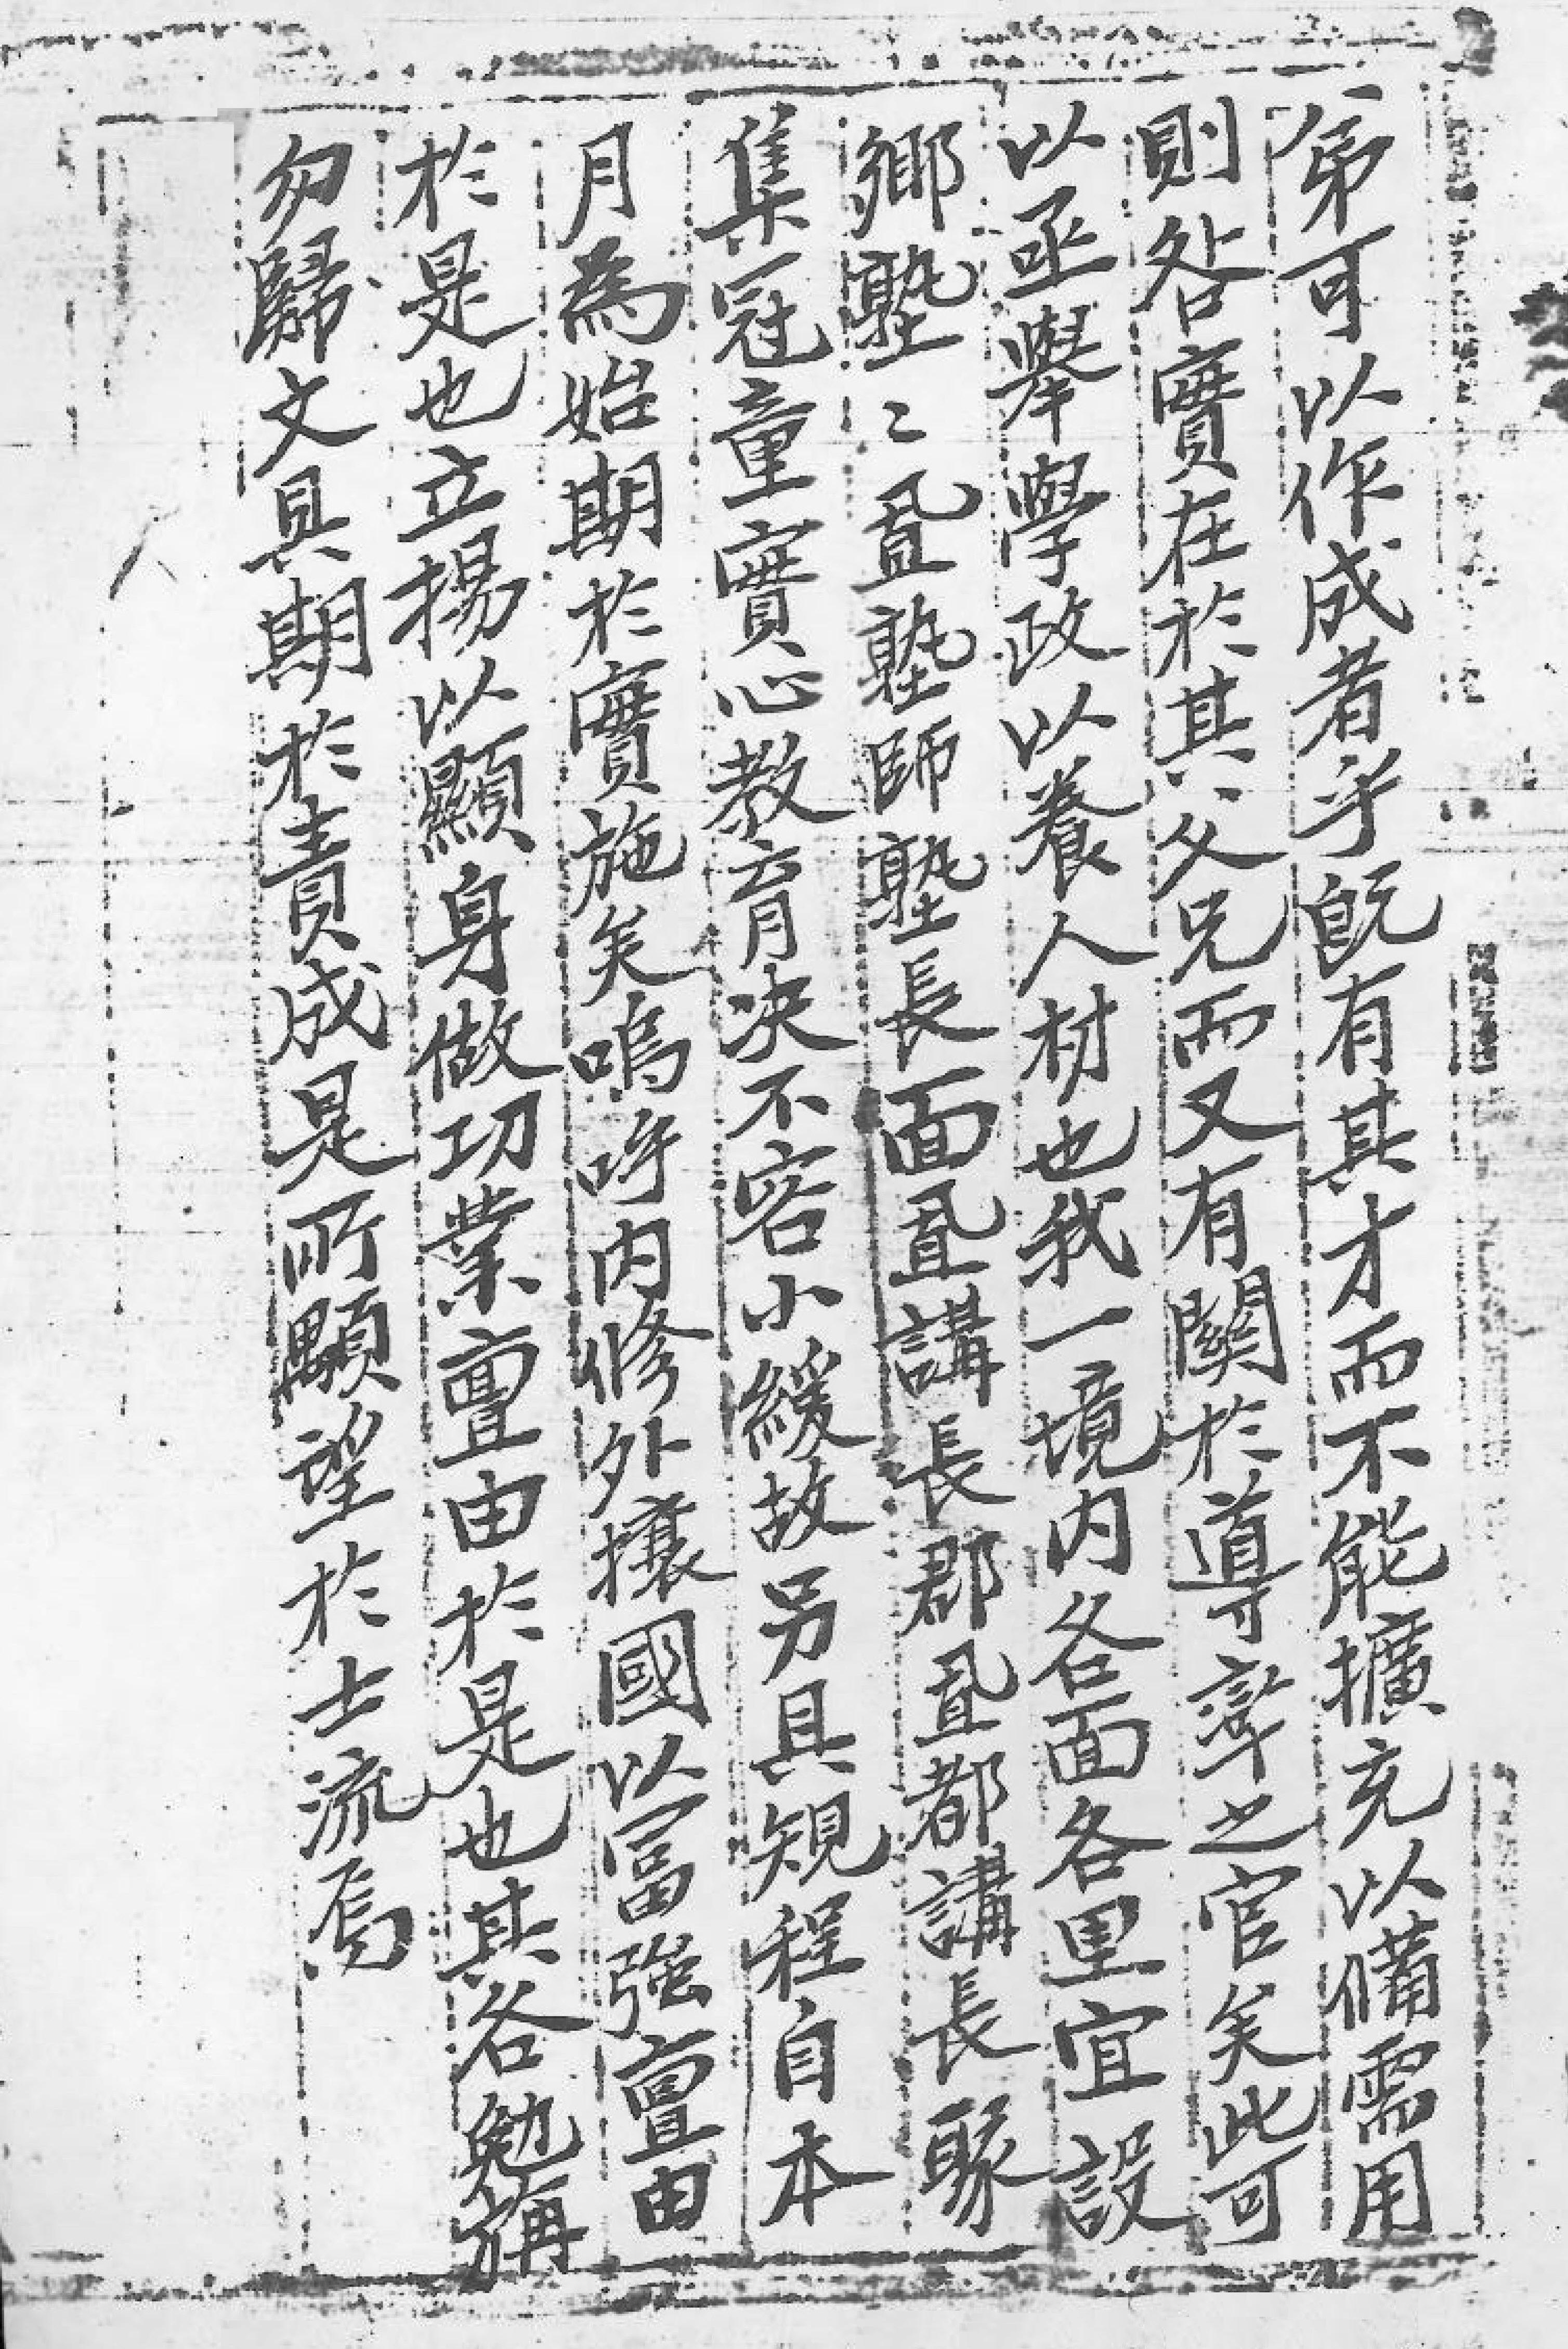 弟可以作成者乎旣有其才而不能擴充以備需用
則咎實在於其父兄而又有關於導率之官矣此可
以亟擧學政以養人材也我一境內各面各里宜設
鄉塾〻置塾師塾長面置講長郡置都講長聚
集冠童實心教育決不容小緩故另具規程自本
月爲始期於實施矣嗚呼內修外攘國以富強亶由
於是也立揚以顯身做功業亶由於是也其各勉旃
勿歸文具期於責成是所顒望於士流焉